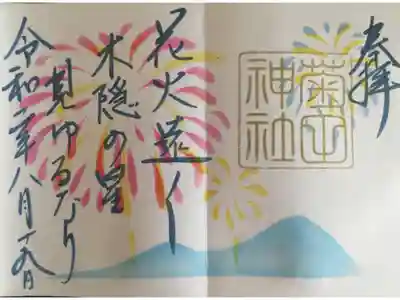 奉拝
菊田
神社
花火遠く
木隠の星
見ゆるなり
令和年八月十日